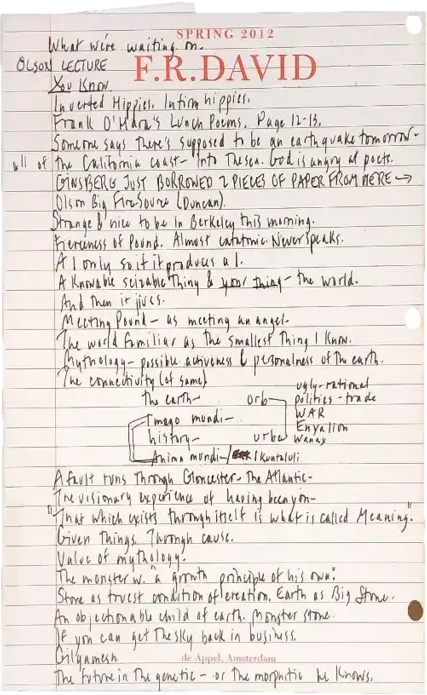 SPRING 2012
What we're waiting on.
OLSON LECTURE
F.R.DAVID
You Know.
Inverted Hippies. Infirm hippies.
Frank O'Hara's Lunch Poems. Page 12-13.
Someone says there's supposed to be an earthquake tomorrow-
all of the California coast- Into The sea. God is angry at poets.
GINSBERG JUST BORROWED 2 PIECES OF PAPER FROM HERE →
Olson Big Fire Source (Duncan).
Strange & nice to be in Berkeley this morning.
Fierceness of Pound. Almost catatonic. Never speaks.
A 1 only so if it produces a 1.
A Knowable seizable Thing & your thing- the world.
And then it jives.
Meeting Pound- as meeting an angel.
The world familiar as the smallest Thing I Know.
Mythology- possible activeness & personalness of the earth.
The connectivity (of same)
the earth-
orb
ugly-rational
politics-trade
WAR
Enyalion
wanax
Imago mundi-
history-
urbe
Anima mundi-/
A fault runs Through Gloucester- The Atlantic-
The visionary experience of having been yon-
"That which exists through itself is what is called Meaning."
Given Things. Through cause.
Value of mythology.
The monster w. "a growth principle of his own."
Stone as truest condition of creation. Earth as Big Stone.
An objectionable child of earth. Monster stone.
If you can get The sky back in business.
Gilgamesh
de Appel, Amsterdam
The future in The genetic- or The morphitic he Knows.